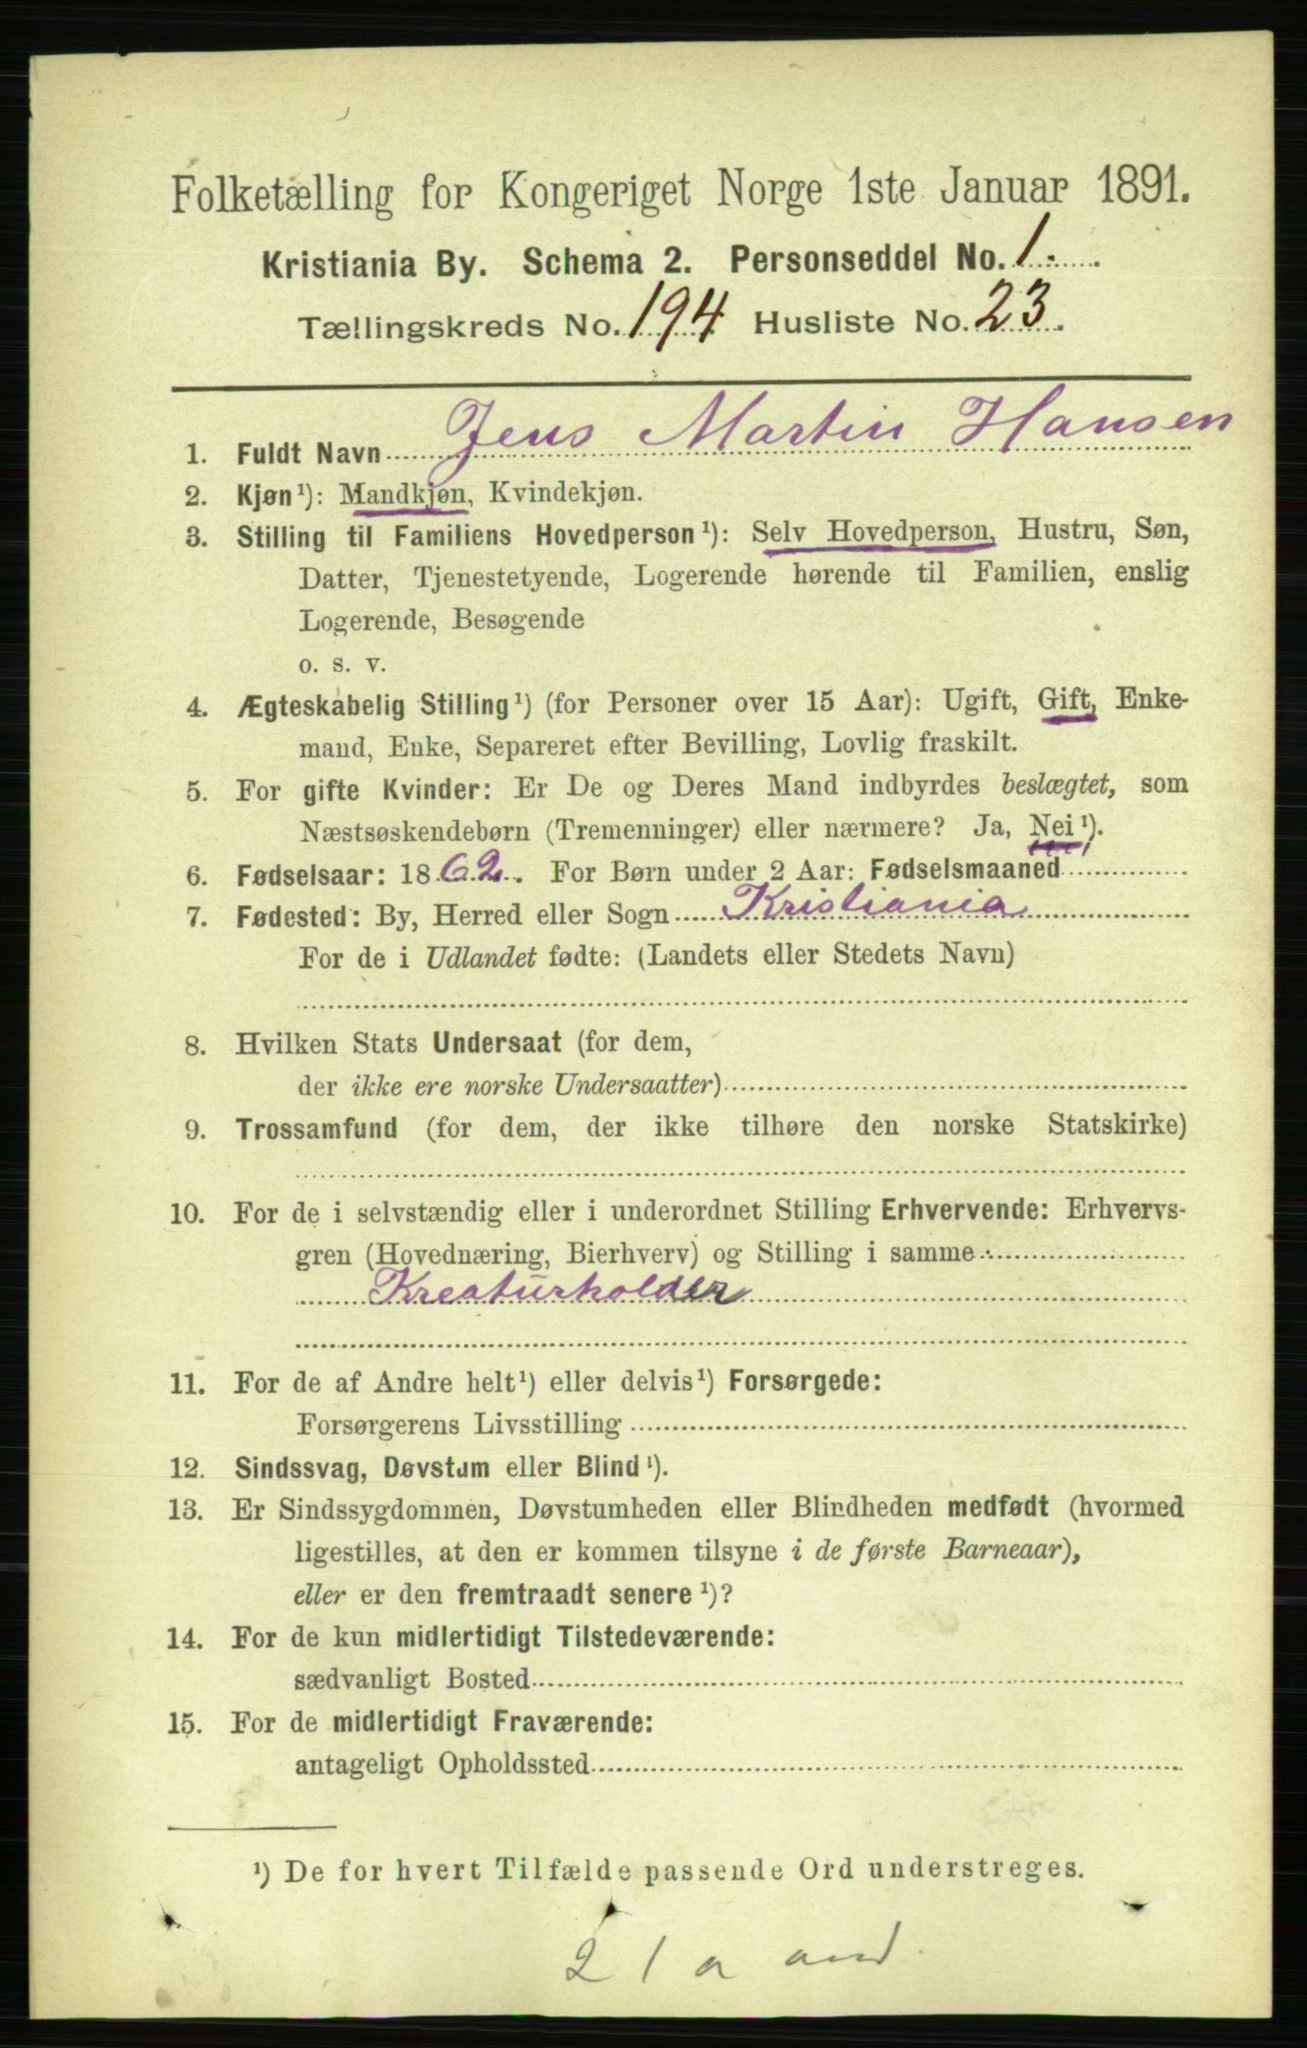 Folketælling for Kongeriget Norge 1ste Januar 1891.
Kristiania By. Schema 2. Personseddel No. 1.
Tællingskreds No. 194 Husliste No. 23.
1. Fuldt Navn Jens Martin Hansen
2. Kjøn¹): Mandkjøn, Kvindekjøn.
3. Stilling til Familiens Hovedperson¹): Selv Hovedperson, Hustru, Søn,
Datter, Tjenestetyende, Logerende hørende til Familien, enslig
Logerende, Besøgende
o. s. v.
4. Ægteskabelig Stilling¹) (for Personer over 15 Aar): Ugift, Gift, Enke-
mand, Enke, Separeret efter Bevilling, Lovlig fraskilt.
5. For gifte Kvinder: Er De og Deres Mand indbyrdes beslægtet, som
Næstsøskendebørn (Tremenninger) eller nærmere? Ja, Nei¹).
6. Fødselsaar: 1862. For Børn under 2 Aar: Fødselsmaaned
7. Fødested: By, Herred eller Sogn Kristiania
For de i Udlandet fødte: (Landets eller Stedets Navn)
8. Hvilken Stats Undersaat (for dem,
der ikke ere norske Undersaatter)
9. Trossamfund (for dem, der ikke tilhøre den norske Statskirke)
10. For de i selvstændig eller i underordnet Stilling Erhvervende: Erhvervs-
gren (Hovednæring, Bierhverv) og Stilling i samme
Kreaturholder
11. For de af Andre helt¹) eller delvis¹) Forsørgede:
Forsørgerens Livsstilling
12. Sindssvag, Døvstum eller Blind¹).
13. Er Sindssygdommen, Døvstumheden eller Blindheden medfødt (hvormed
ligestilles, at den er kommen tilsyne i de første Barneaar),
eller er den fremtraadt senere¹)?
14. For de kun midlertidigt Tilstedeværende:
sædvanligt Bosted
15. For de midlertidigt Fraværende:
antageligt Opholdssted
¹) De for hvert Tilfælde passende Ord understreges.
2 1 a